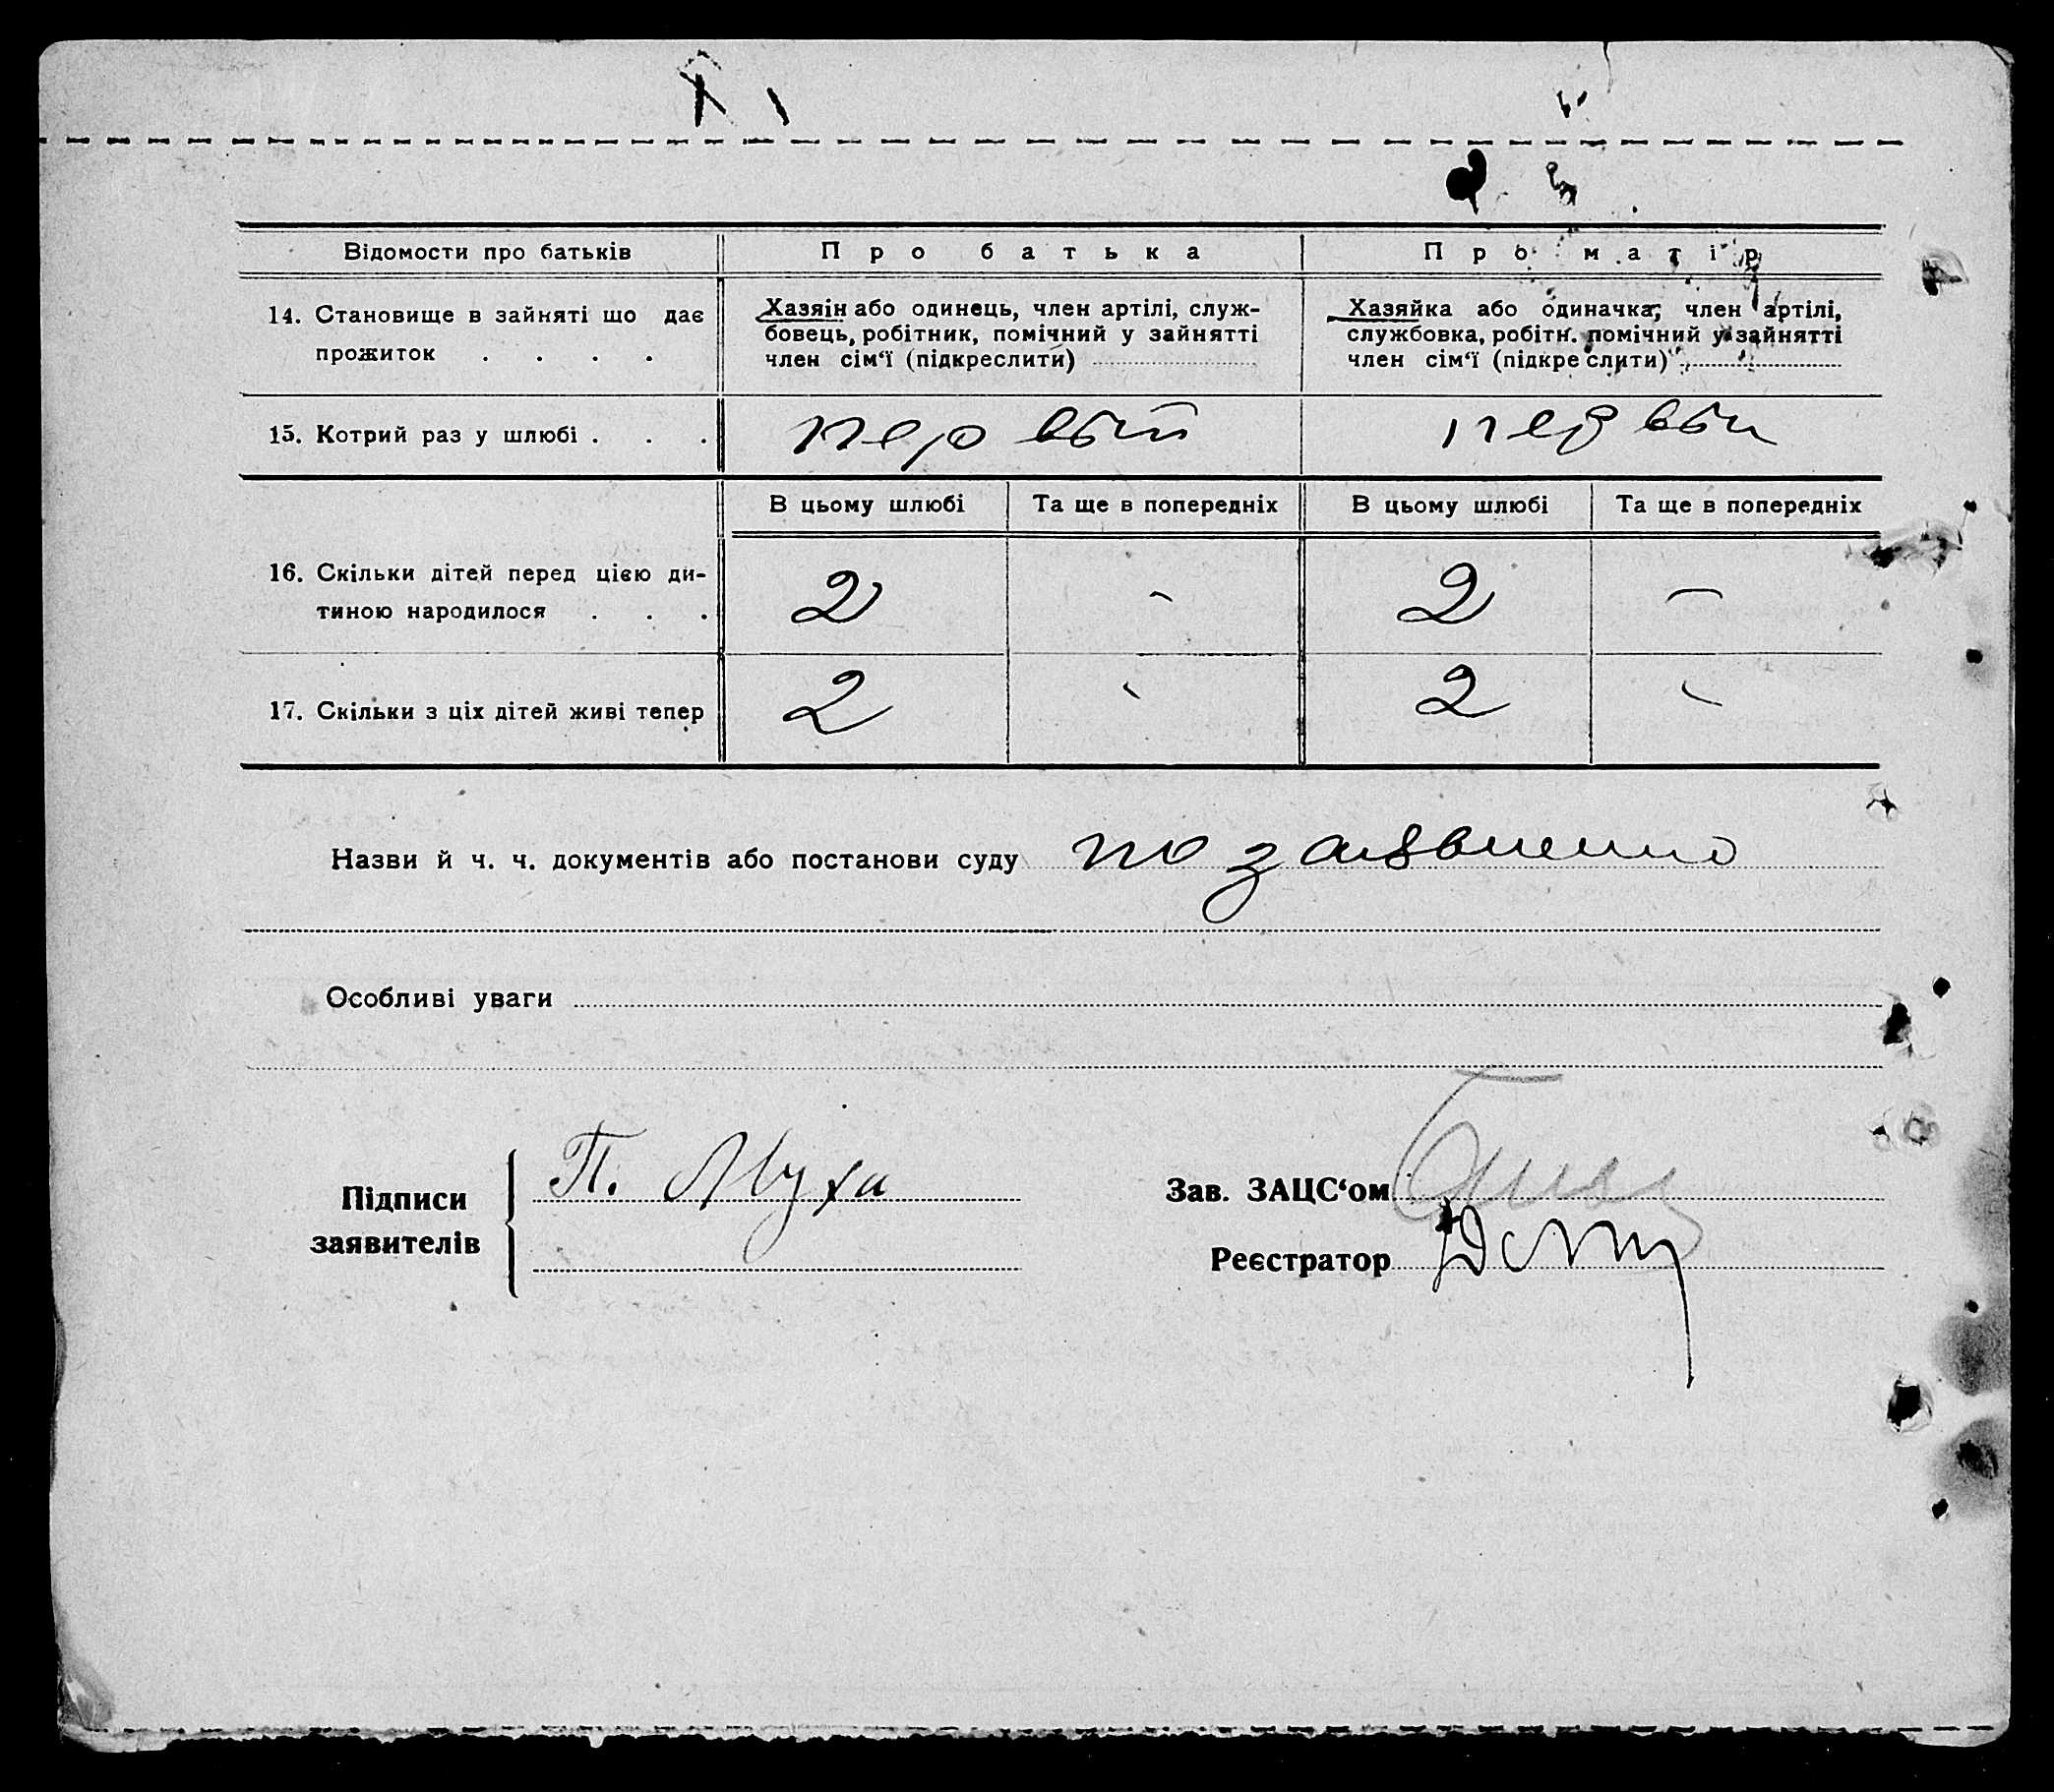 Відомости про батьків Про батька Про матір
14. Становище в зайняті що дає прожиток . . . .
Хазяін або одинець, член артілі, служ-
бовець, робітник, помічний у зайнятті
член сім‘ї (підкреслити)
Хазяйка або одиначка, член артілі,
службовка, робітн. помічний у зайнятті
член сім‘ї (підкреслити)
15. Котрий раз у шлюбі . . . первый первый
В цьому шлюбі Та ще в попередніх В цьому шлюбі Та ще в попередніх
16. Скільки дітей перед цією ди-
тиною народилося . . . 2 - 2 -
17. Скільки з ціх дітей живі тепер 2 - 2 -
Назви й ч. ч. документів або постанови суду по заявлению
Особливі уваги
Підписи
заявителів
П. Муха
Зав. ЗАЦС‘ом
Реєстратор